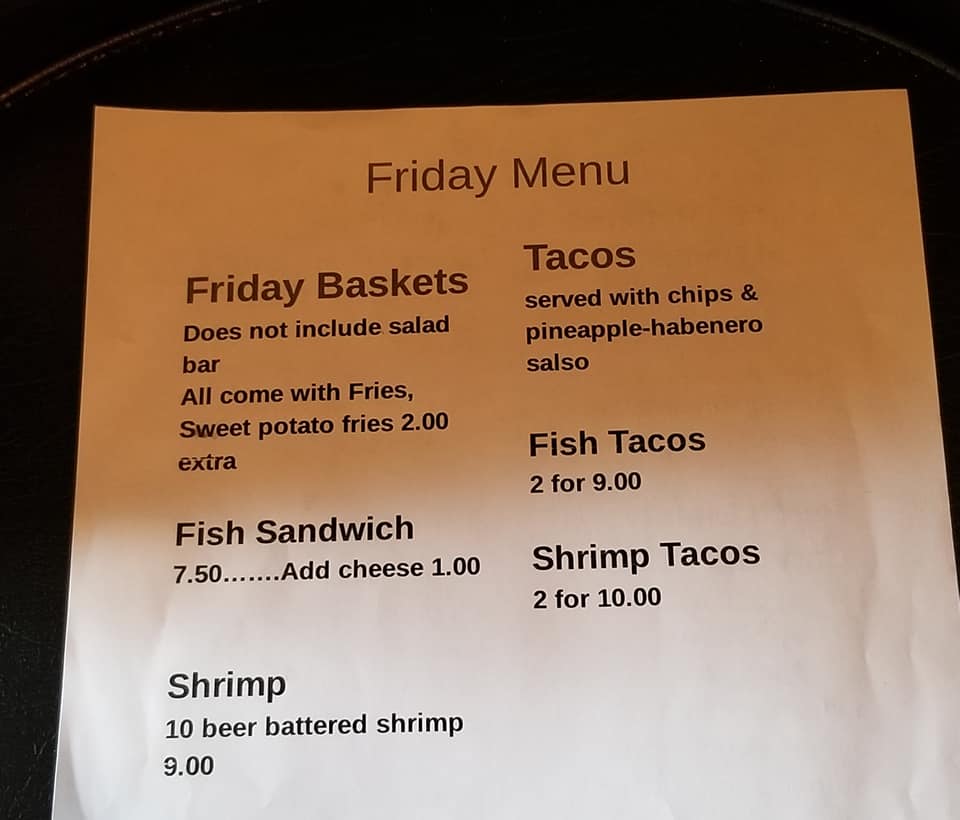 Friday Menu
Friday Baskets
Does not include salad
bar
All come with Fries,
Sweet potato fries 2.00
extra
Fish Sandwich
7.50.......Add cheese 1.00
Shrimp
10 beer battered shrimp
9.00
Tacos
served with chips &
pineapple-habenero
salso
Fish Tacos
2 for 9.00
Shrimp Tacos
2 for 10.00